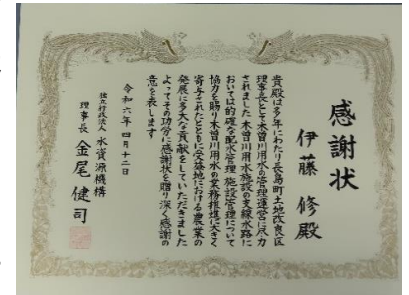 感謝状
伊藤 修殿
貴殿は多年にわたり長島町土地改良区
理事長として木曽川用水の管理運営に尽力
されました 木曽川用水施設の支線水路に
おいては的確な配水管理 施設管理について
協力を賜り木曽川用水の業務推進に大きく
寄与されたとともに受益地における農業の
発展に多大な貢献をしていただきました
よってその功労に感謝状を贈り深く感謝の
意を表します
令和六年四月十二日
独立行政法人 水資源機構
理事長 金尾健司